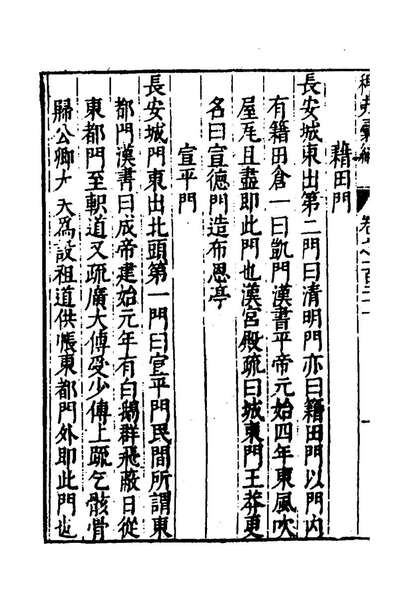 稗史彙編 卷之一百二十一
藉田門
長安城東出第二門曰清明門亦曰籍田門以門內
有籍田倉一曰凱門漢書平帝元始四年東風吹
屋瓦且盡即此門也漢宮殿疏曰城東門王莽更
名曰宣德門造布恩亭
宣平門
長安城門東出北頭第一門曰宣平門民間所謂東
都門漢書曰成帝建始元年有白鵝群飛蔽日從
東都門至軹道又疏廣大傅受少傅上疏乞骸骨
歸公卿大夫為設祖道供帳東都門外即此門也